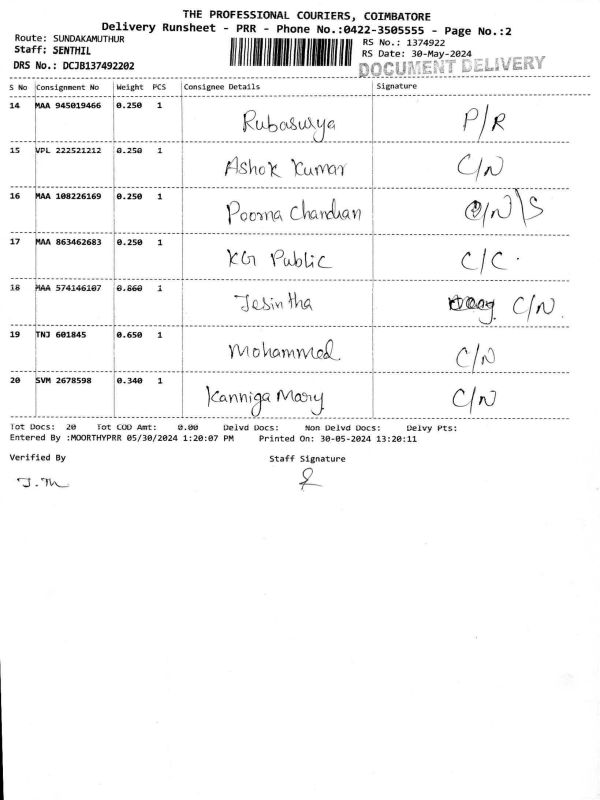 THE PROFESSIONAL COURIERS, COIMBATORE
Delivery Runsheet - PRR - Phone No.:0422-3505555 - Page No.:2
Route: SUNDAKAMUTHUR RS No.: 1374922
Staff: SENTHIL RS Date: 30-May-2024
DRS No.: DCJB137492202 DOCUMENT DELIVERY
S No Consignment No Weight PCS Consignee Details Signature
14 MAA 945019466 0.250 1 Rubasurya P/R
15 VPL 222521212 0.250 1 Ashok Kumar C/N
16 MAA 108226169 0.250 1 Poorna Chandran C/N\S
17 MAA 863462683 0.250 1 KG Public C/C.
18 MAA 574146107 0.860 1 Jesintha C/N.
19 TNJ 601845 0.650 1 Mohammed C/N
20 SVM 2678598 0.340 1 Kanniga Mary C/N
Tot Docs: 20 Tot COD Amt: 0.00 Delvd Docs: Non Delvd Docs: Delvy Pts:
Entered By :MOORTHYPRR 05/30/2024 1:20:07 PM Printed On: 30-05-2024 13:20:11
Verified By Staff Signature